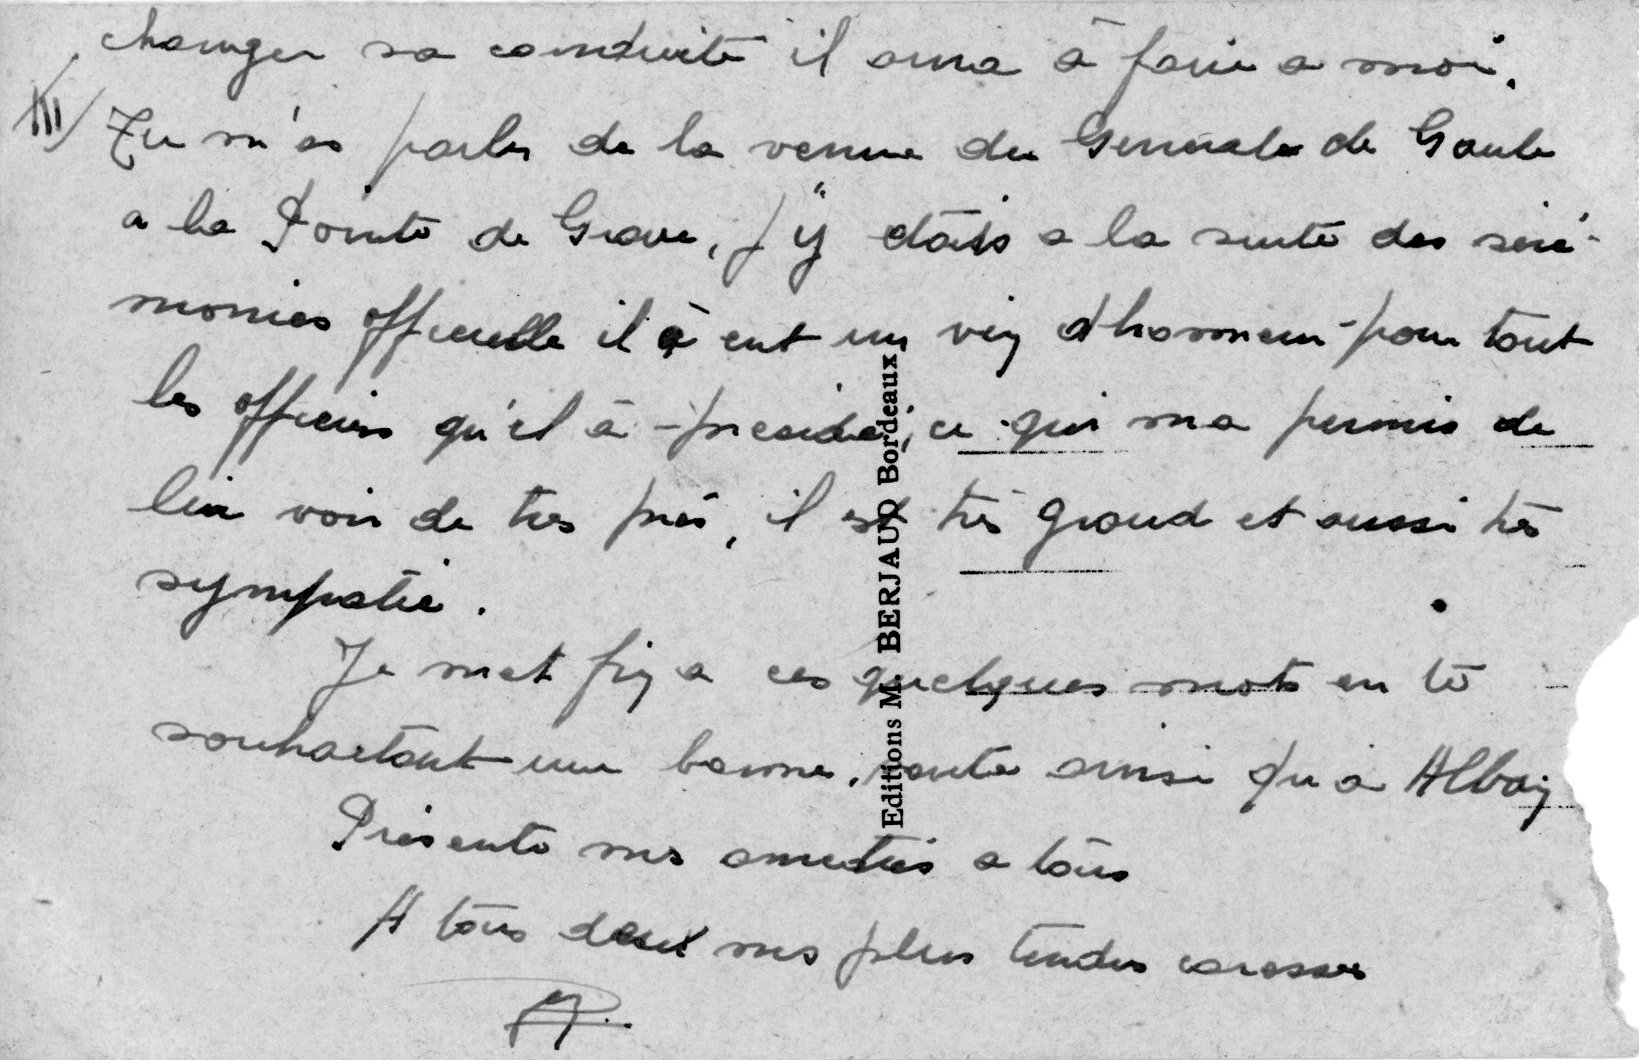 changer sa conduite il aura à faire a moi.
III/ Tu m'as parler de la venue du Generale de Gaule
a la Pointe de Grave, j'y étais a la suite des séré-
monies officielle il à eut un vin d'honneur pour tout
les officiers qu'il à présidé, ce qui ma permis de
le voir de tres près, il est très grand et aussi très
sympatie.
Je met fin a ces quelques mots en te
souhaitant une bonne santé ainsi qu'a Albain
Présente mes amitiés a tous
A tous deux mes plus tendres caresses
Editions M. BERJAUD Bordeaux